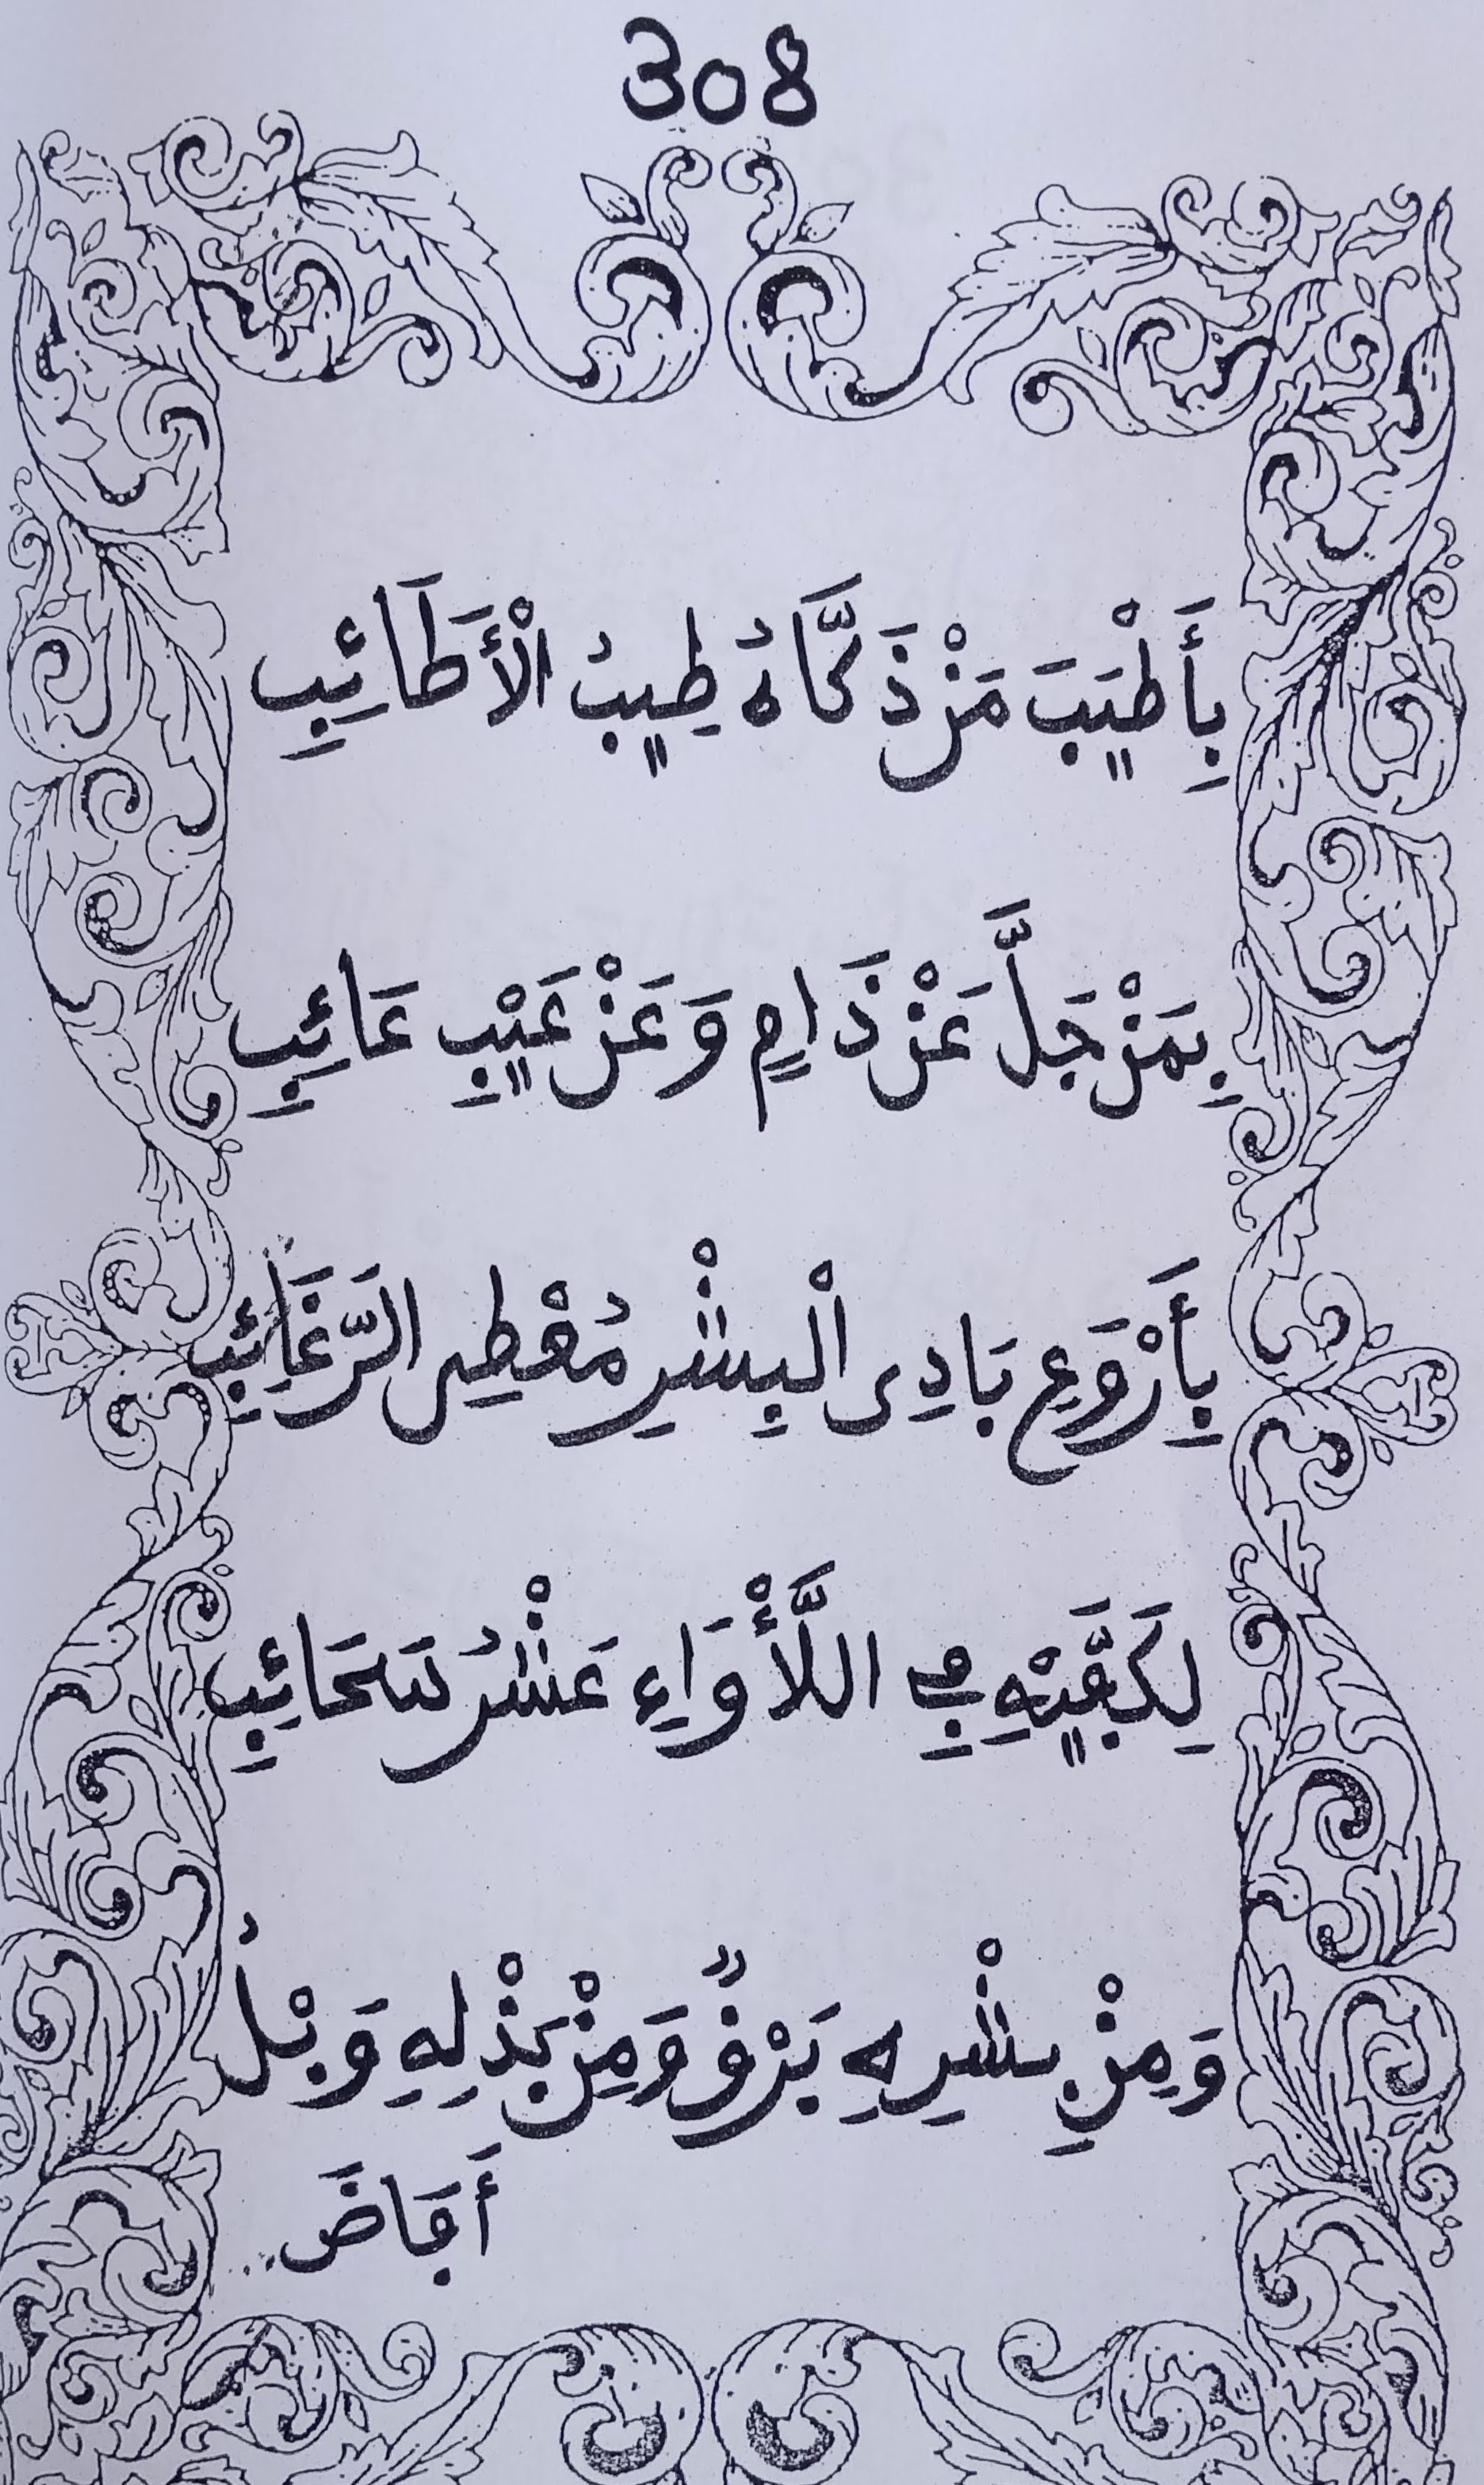 308
بِأَطْيَبَ مَنْ ذَكَّاهُ طِيبُ الْأَطَائِبِ
بِمَنْ جَلَّ عَنْ ذَامٍ وَعَنْ عَيْبِ عَائِبِ
بِأَرْوَعِ بَادِى الْبِشْرِ مُعْطِى الرَّغَائِبِ
لِكَفَّيْهِ فِي اللَّأْوَاءِ عَشْرُ سَحَائِبِ
وَمِنْ بِشْرِهِ بَرْقٌ وَمِنْ بَذْلِهِ وَبْلُ
أَفَاضَ..